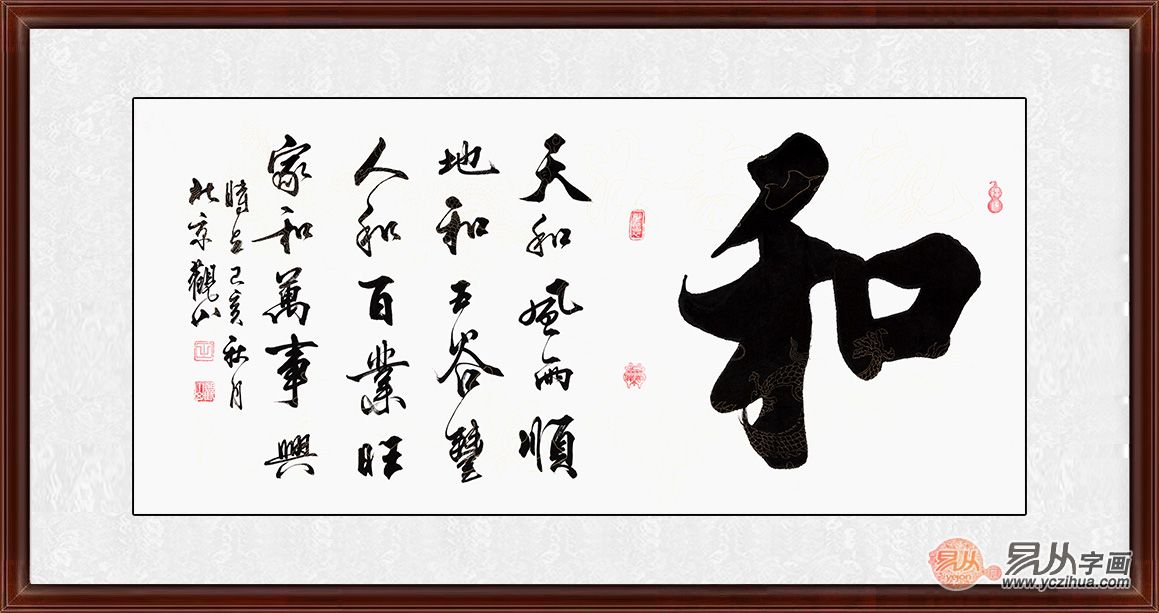 和
天和風雨順
地和五谷豐
人和百業旺
家和萬事興
時在己亥秋月
北京觀山
易从
易从字画
www.yczihua.com